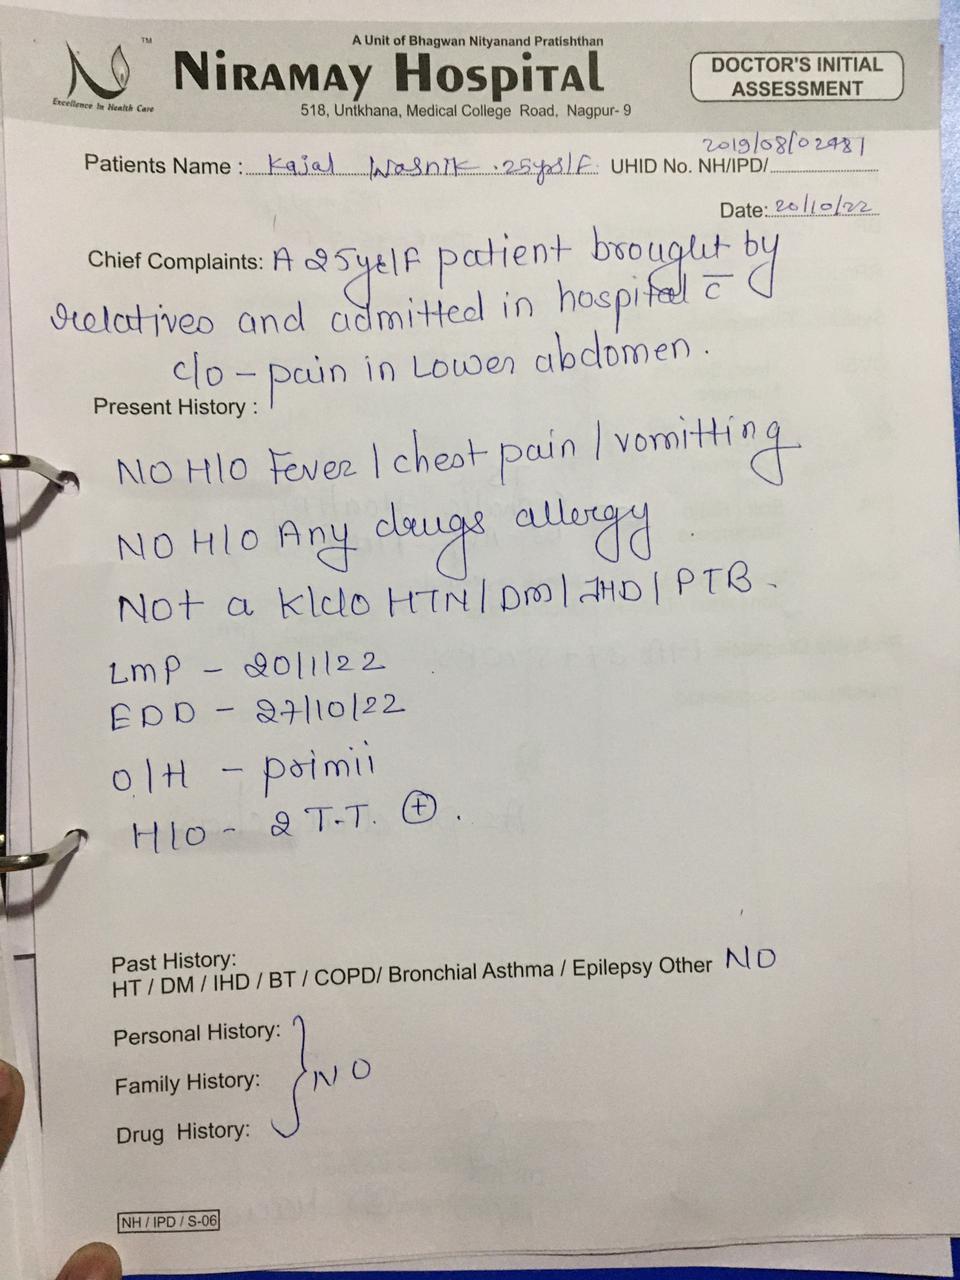 TM
A Unit of Bhagwan Nityanand Pratishthan
NIRAMAY HOSPITAL
Excellence In Health Care
518, Untkhana, Medical College Road, Nagpur- 9
DOCTOR'S INITIAL
ASSESSMENT
Patients Name : Kajal Wasnik . 25yrs/F. UHID No. NH/IPD/ 2019/08/02481
Date: 20/10/22
Chief Complaints: A 25yr/F patient brought by
relatives and admitted in hospital c̅
c/o - pain in Lower abdomen.
Present History :
NO H/O Fever / chest pain / vomitting
NO H/O Any drugs allergy
Not a K/c/o HTN / DM / IHD / PTB .
LMP - 20/1/22
EDD - 27/10/22
O/H - primii
H/O - 2 T.T. (+) .
Past History:
HT / DM / IHD / BT / COPD/ Bronchial Asthma / Epilepsy Other NO
Personal History:
Family History: } NO
Drug History:
NH / IPD / S-06